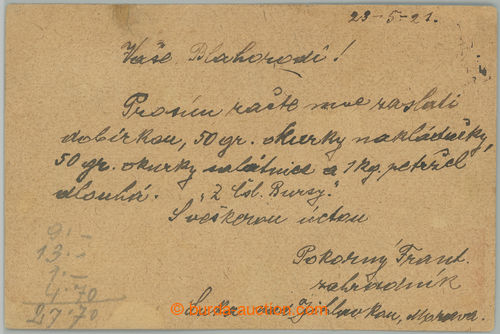 23-5-21.
Vaše Blahorodí!
Prosím račte mne zaslati
dobírkou, 50 gr. okurky nakládačky,
50 gr. okurky salátnice a 1 kg. petržel
dlouhá. „Z Čsl. Bursy.“
S veškerou úctou
Pokorný Frant.
zahradník
Luka nad Jihlavkou, Morava.
9.–
13.–
1.–
4.70
27.70
burda-auction.com